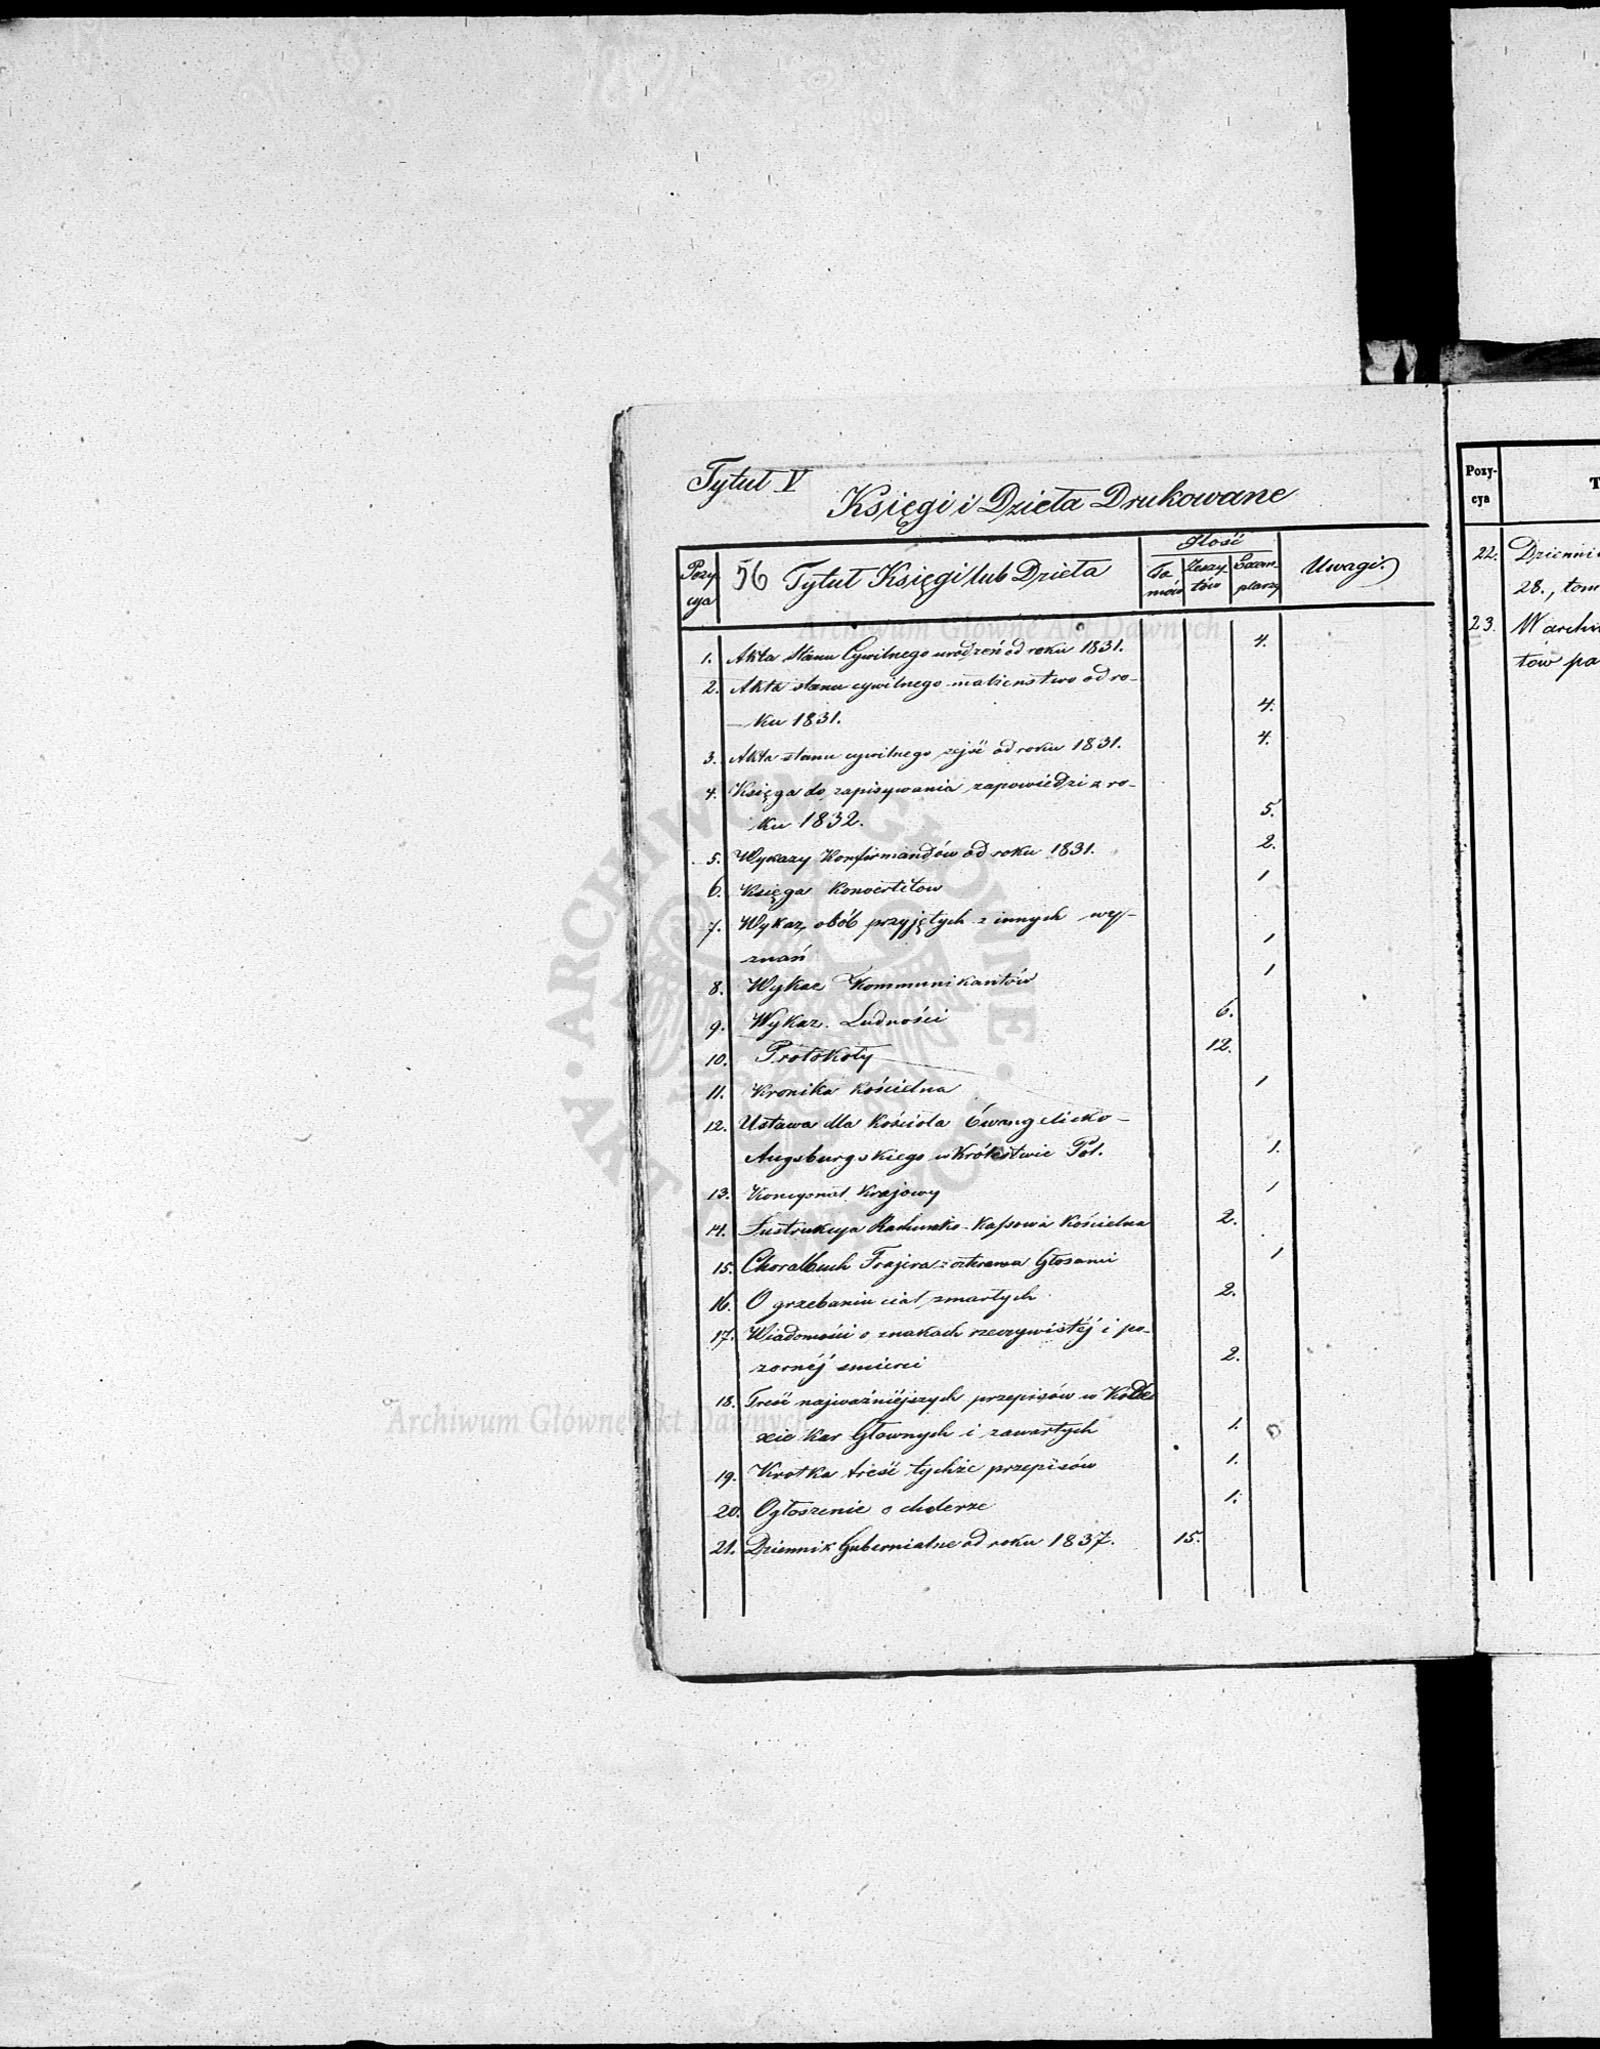 Tytuł V
Księgi i Dzieła Drukowane
Pozy-
cya
56 Tytuł Księgi lub Dzieła
Ilość
To-
mów
Zeszy-
tów
Exem-
plarzy
Uwagi.
1. Akta Stanu Cywilnego urodzeń od roku 1831. 4.
2. Akta stanu cywilnego małżeństwo od ro-
ku 1831. 4.
3. Akta stanu cywilnego zejść od roku 1831. 4.
4. Księga do zapisywania zapowiedzi z ro-
ku 1832. 5.
5. Wykazy Konfirmandów od roku 1831. 2.
6. Księga Konwertitow 1
7. Wykaz osób przyjętych z innych wy-
znań 1
8. Wykaz Kommunikantów 1
9. Wykaz Ludności 6.
10. Protokoły 12.
11. Kronika Kościelna 1
12. Ustawa dla Kościoła Ewangelicko-
Augsburgskiego w Królestwie Pol. 1.
13. Krajowy 1
14. Instrukcya Rachunko-Kassowa Kościelna 2.
15. Choralbuch 1
16. O grzebaniu ciał zmarłych 2.
17. Wiadomości o znakach rzeczywistéj i po-
zornéj smierci 2.
18. Treść najważniéjszych przepisów w Kode
xie Kar Głownych i zawartych 1.
19. Krotka treść tychże przepisów 1.
20. Ogłoszenie o cholerze 1.
21. Dziennik Gubernialne od roku 1837. 15.
Pozy-
cya
T
22. Dzienni
28., tom
23. W archi
tow pa
Archiwum Główne Akt Dawnych
ARCHIWUM GŁÓWNE · AKT DAWNYCH ·
Archiwum Główne Akt Dawnych